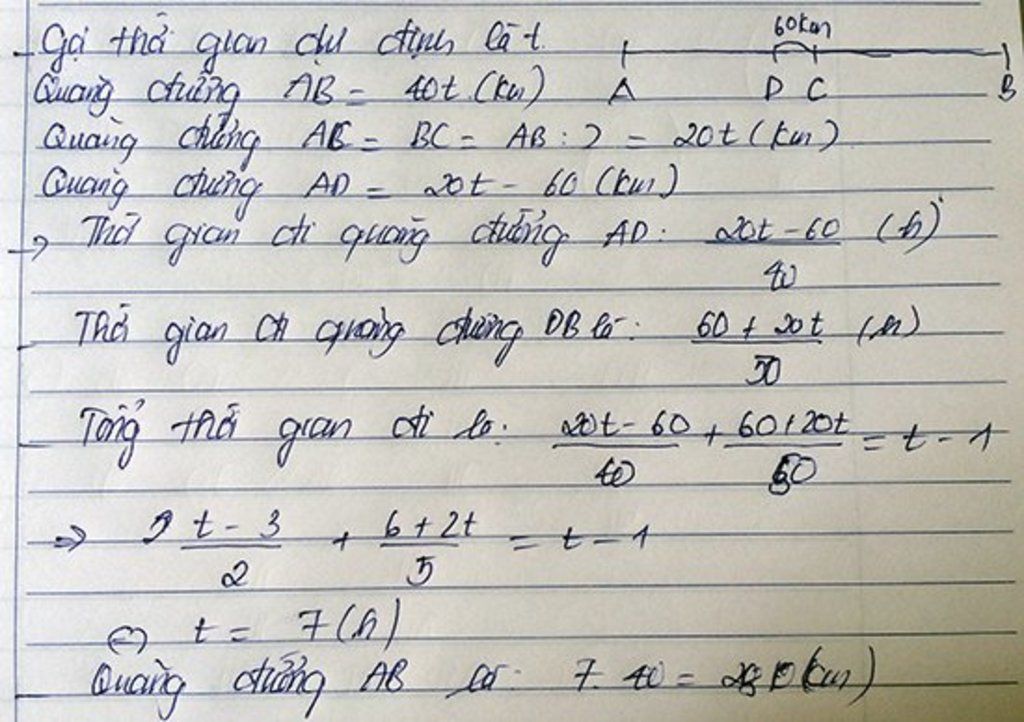 Gọi thời gian dự định là t.
60km
A D C B
Quãng đường AB = 40t (km)
Quãng đường AC = BC = AB : 2 = 20t (km)
Quãng đường AD = 20t - 60 (km)
→ Thời gian đi quãng đường AD: \frac{20t - 60}{40} (h)
Thời gian đi quãng đường DB là: \frac{60 + 20t}{50} (h)
Tổng thời gian đi là: \frac{20t - 60}{40} + \frac{60 + 20t}{50} = t - 1
⇒ \frac{t - 3}{2} + \frac{6 + 2t}{5} = t - 1
⇔ t = 7 (h)
Quãng đường AB là: 7. 40 = 280 (km)